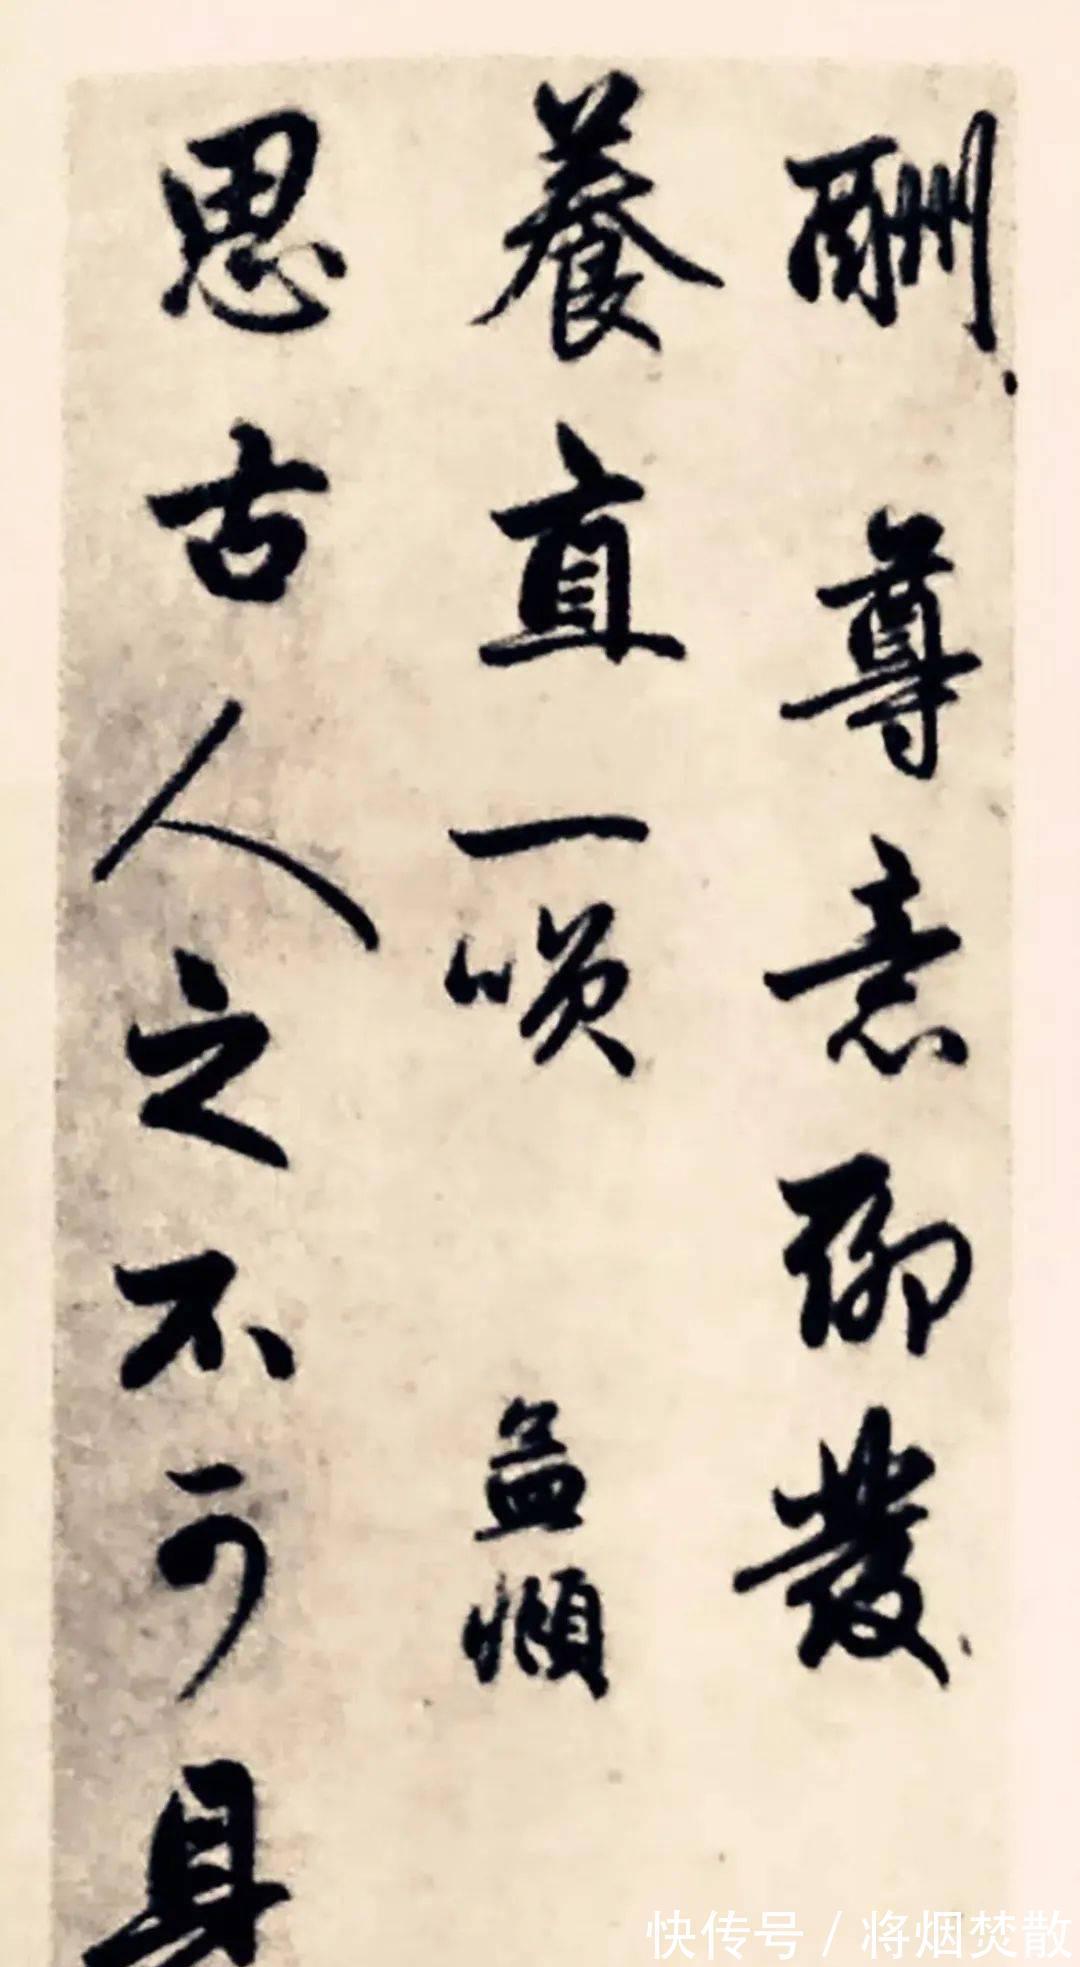 酬尊意聊發
養直一 孟頫
思古人之不可
快传号 / 将烟焚散